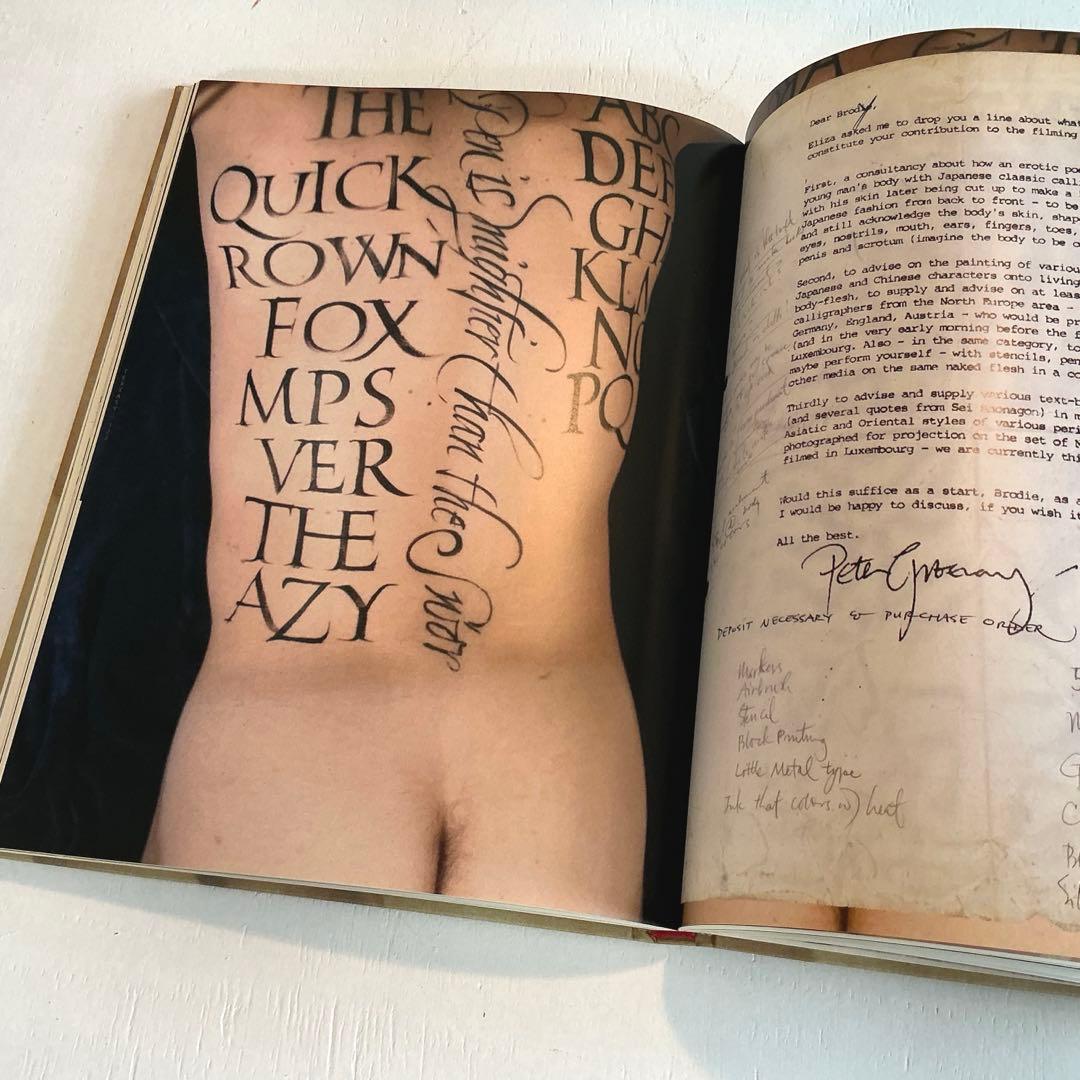 THE
QUICK
ROWN
FOX
MPS
VER
THE
AZY
Pen is mightier than the Sword
ABC
DEF
GH
KLM
NO
PQ
Dear Brodie,
Eliza asked me to drop you a line about what
constitute your contribution to the filming
First, a consultancy about how an erotic po
young man's body with Japanese classic call
with his skin later being cut up to make a
Japanese fashion from back to front - to be
and still acknowledge the body's skin, shap
eyes, nostrils, mouth, ears, fingers, toes,
penis and scrotum (imagine the body to be o
Second, to advise on the painting of variou
Japanese and Chinese characters onto living
body-flesh, to supply and advise on at leas
calligraphers from the North Europe area -
Germany, England, Austria - who would be pr
(and in the very early morning before the f
Luxembourg. Also - in the same category, to
maybe perform yourself - with stencils, pen
other media on the same naked flesh in a co
Thirdly to advise and supply various text-b
(and several quotes from Sei Shonagon) in m
Asiatic and Oriental styles of various peri
photographed for projection on the set of N
filmed in Luxembourg - we are currently thi
Would this suffice as a start, Brodie, as a
I would be happy to discuss, if you wish it
All the best.
Peter Greenaway
DEPOSIT NECESSARY & PURCHASE ORDER
Markers
Airbrush
Stencil
Block Printing
Little Metal type
Ink that colors w) heat